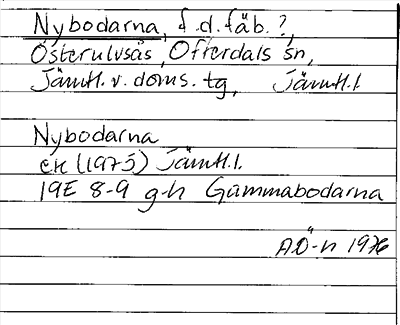 Nybodarna, f.d. fäb. ?,
Österulvsås, Offerdals sn,
Jämtl. v. doms. tg, Jämtl. l.
Nybodarna
ek (1975) Jämtl. l.
19E 8-9 g-h Gammabodarna
AÖ-n 1976